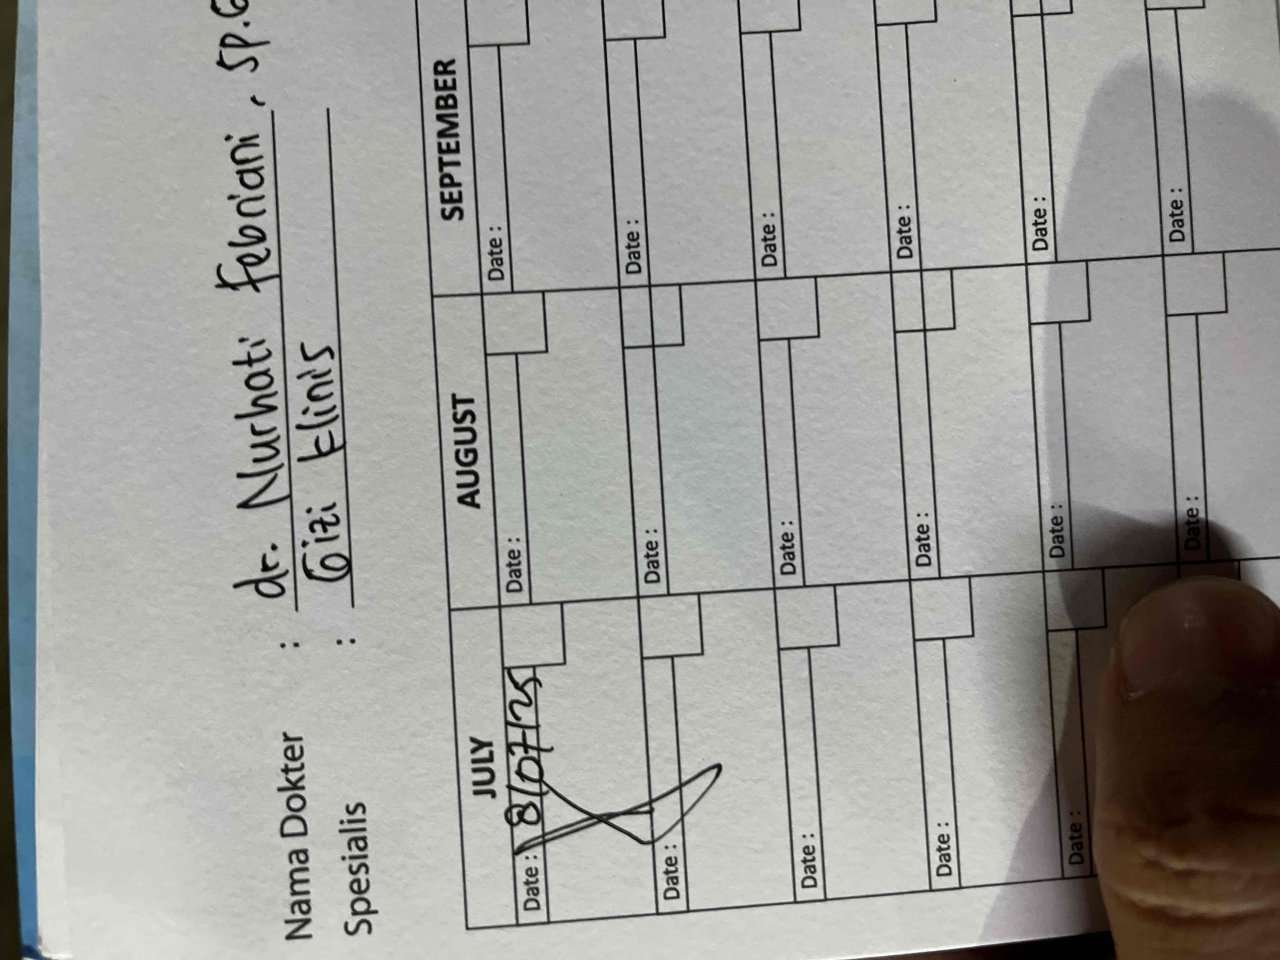 Nama Dokter : dr. Nurhati Febriani, Sp.G
Spesialis : Gizi Klinis
JULY AUGUST SEPTEMBER
Date : 8/07/25 Date : Date :
Date : Date : Date :
Date : Date : Date :
Date : Date : Date :
Date : Date : Date :
Date : Date :